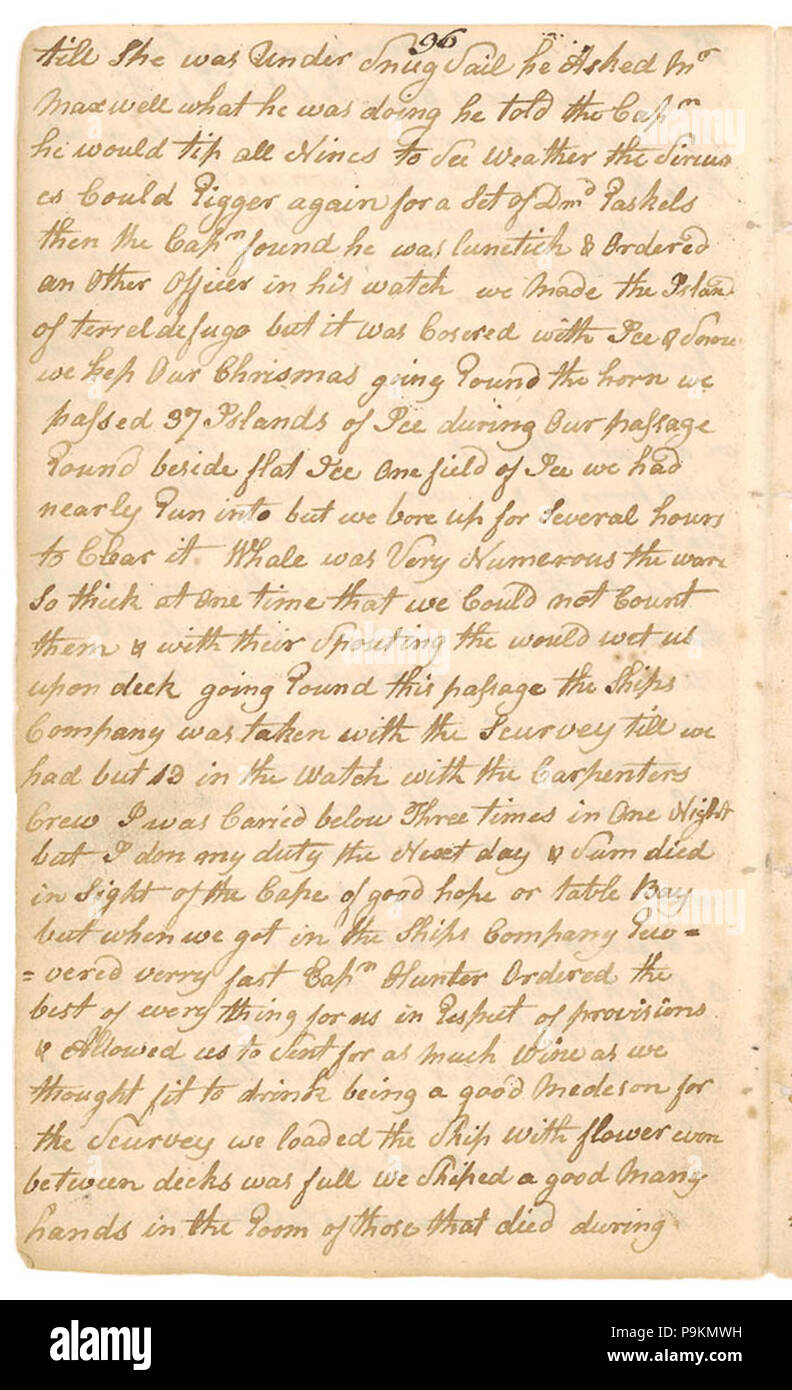 96
till She was Under Snug Sail he Asked Mr
Maxwell what he was doing he told the Capn
he would tip all Nines to See Weather the Sirius
es Could Rigger again for a Set of Dmd Raskels
then the Capn found he was lunetick & Ordered
an Other Officer in his watch we Made the Island
of terrel de fugo but it was Covered with Ice & Snow
we kep Our Chrismas going Round the horn we
passed 37 Islands of Ice during Our passage
Round beside flat Ice One field of Ice we had
nearly Run into but we bore up for Several hours
to Clear it. Whale was Very Numerous the ware
So thick at One time that we Could not Count
them & with their Spouting the would wet us
upon deck going Round this passage the Ships
Company was taken with the Scurvey till we
had but 13 in the Watch with the Carpenters
Crew I was Caried below Three times in One Night
but I don my duty the Next day & Sum died
in Sight of the Cape of good hope or table Bay
but when we got in the Ships Company Rew=
=vered verry fast Capn Hunter Ordered the
best of every thing for us in Respect of provisions
& Allowed us to Sent for as Much Wine as we
thought fit to drink being a good Medeson for
the Scurvey we loaded the Ship with flower even
between decks was full we Shiped a good Many
hands in the Room of those that died during
alamy
a
Image ID: P9KMWH
www.alamy.com